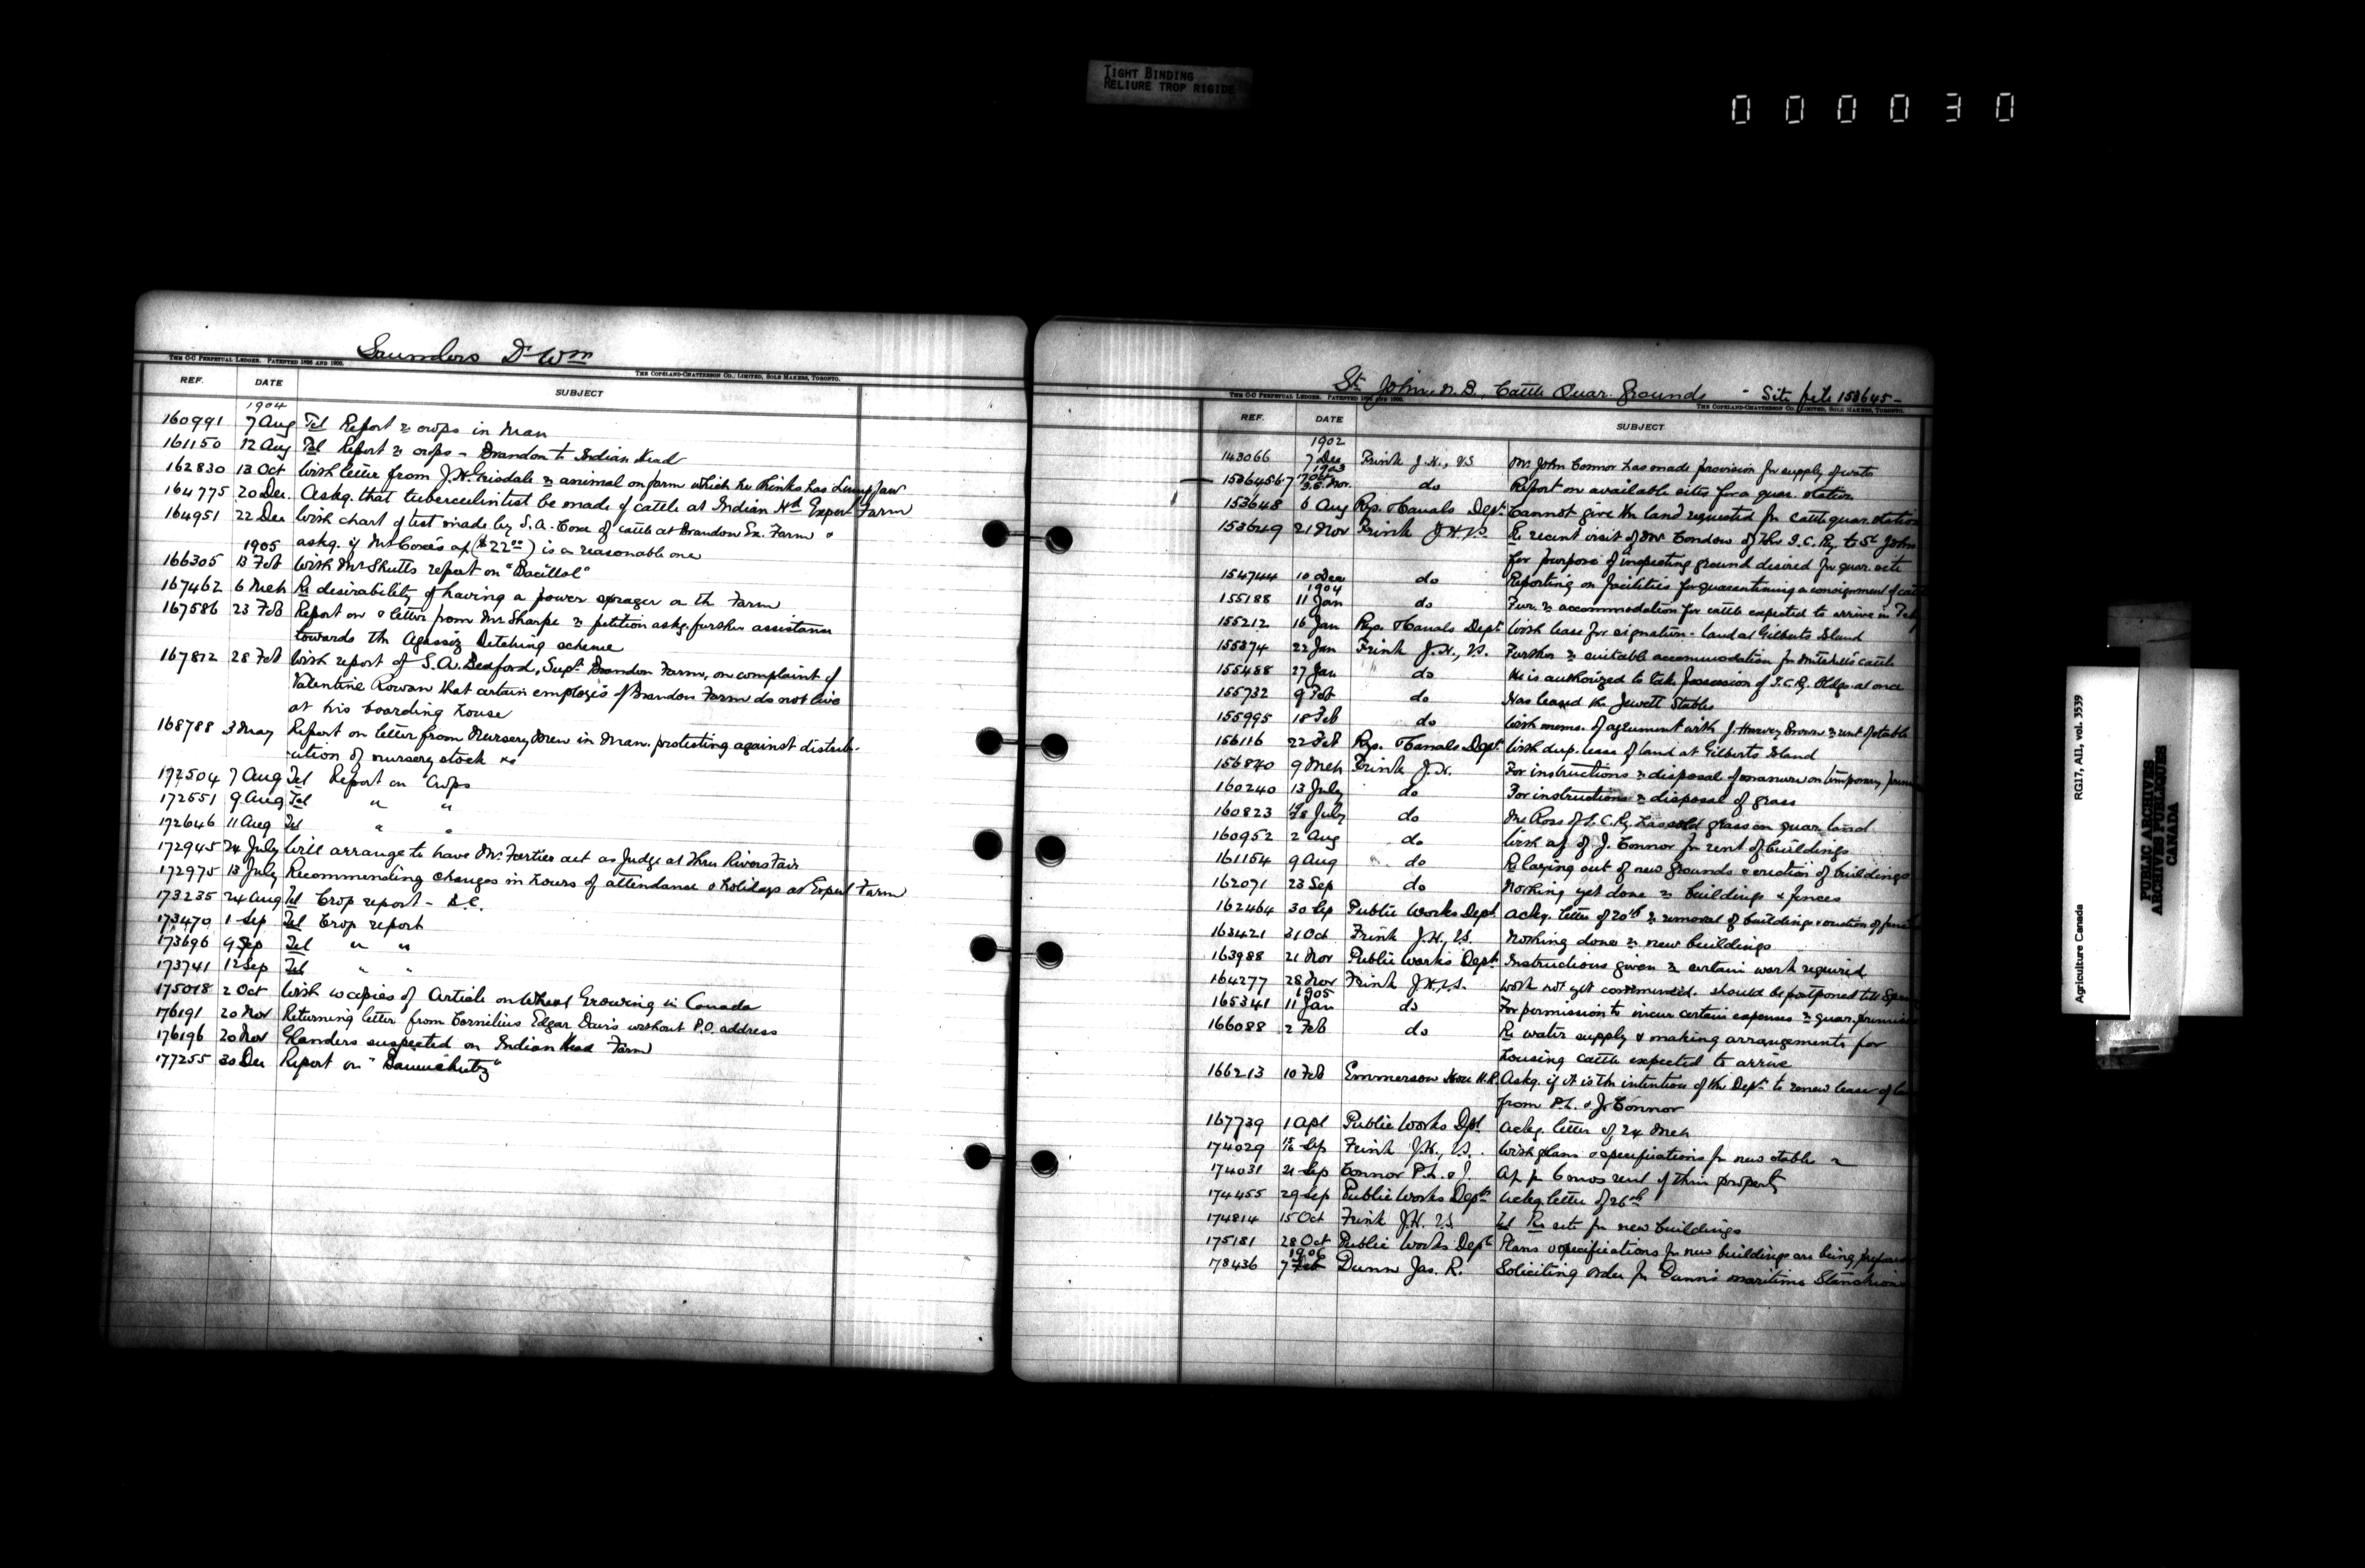 TIGHT BINDING
RELIURE TROP RIGIDE
000030
Saunders Dr Wm
THE C-C PERPETUAL LEDGER. PATENTED 1896 AND 1900.
THE COPELAND-CHATTERSON CO., LIMITED, SOLE MAKERS, TORONTO.
REF. DATE SUBJECT
1904
160991 7 Aug Tel Report re crops in Man
161150 12 Aug Tel Report re crops - Brandon to Indian Head
162830 13 Oct With letter from J.H. Grisdale re animal on farm which he thinks has Lump Jaw
164775 20 Dec Askg. that tuberculin test be made of cattle at Indian Hd Exper Farm
164951 22 Dec With chart of test made by S.A. Coxe of cattle at Brandon Ex. Farm &
1905 askg. if Mr Coxe's a/c ($22.00) is a reasonable one
166305 13 Feb With Mr Shutts report on "Bacillol"
167462 6 Mch Re desirability of having a power sprayer on the Farm
167586 23 Feb Report on & letter from Mr Sharpe re petition askg. further assistance
towards the Agassiz Ditching scheme
167812 28 Feb With report of S.A. Bedford, Supt. Brandon Farm, on complaint of
Valentine Rowan that certain employés of Brandon Farm do not live
at his boarding house
168788 3 May Report on letter from Nursery Men in Man. protesting against distrib-
-ution of nursery stock &c
172504 7 Aug Tel Report on Crops
172551 9 Aug Tel " "
172646 11 Aug Tel " "
172945 24 July Will arrange to have Mr. Fortier act as Judge at Three Rivers Fair
172975 13 July Recommending changes in hours of attendance & holidays at Exper Farm
173235 24 Aug Tel Crop report - B.C.
173470 1 Sep Tel Crop report
173696 9 Sep Tel " "
173741 12 Sep Tel " "
175018 2 Oct With copies of Article on Wheat Growing in Canada
176191 20 Nov Returning letter from Cornelius Edgar Davis without P.O. address
176196 20 Nov Glanders suspected on Indian Head Farm
177255 30 Dec Report on
St John, N.B., Cattle Quar. Grounds - Site file 153645-
THE C-C PERPETUAL LEDGER. PATENTED 1896 AND 1900.
THE COPELAND-CHATTERSON CO., LIMITED, SOLE MAKERS, TORONTO.
REF. DATE SUBJECT
1902
143066 7 Dec Frink J.H., V.S. Mr. John Connor has made provision for supply of water
1903
153645-6-7 Nov. do Report on available sites for a quar. station
153648 6 Aug Rys. & Canals Dept. Cannot give the land requested for cattle quar. station
153649 21 Nov Frink J.H. V.S. Re recent visit of Mr. Condow of the I.C. Ry. to St John
for purpose of inspecting ground desired for quar. site
154744 10 Dec do Reporting on facilities for quarantining a consignment of cattle
1904
155188 11 Jan do Fur. re accommodation for cattle expected to arrive in Feby
155212 16 Jan Rys. & Canals Dept With lease for signature - land at Gilberts Island
155374 22 Jan Frink J.H., V.S. Further re suitable accommodation for Mitchell's cattle
155488 27 Jan do He is authorized to take possession of I.C.R. Bldgs. at once
155732 9 Feb do Has leased the Jewett Stables
155995 18 Feb do With memo. of agreement with J. Harvey Brown re rent of stable
156116 22 Feb Rys. & Canals Dept. With dup. lease of land at Gilberts Island
156840 9 Mch Frink J.H. For instructions re disposal of manure on temporary
160240 13 July do For instructions re disposal of grass
160823 July do Mr. Ross of I.C. Ry. has sold grass on quar. land
160952 2 Aug do With a/c of J. Connor for rent of buildings
161154 9 Aug do Re laying out of new grounds & erection of buildings
162071 23 Sep do Nothing yet done re buildings & fences
162464 30 Sep Public Works Dept. Ackg. letter of 20th re removal of buildings & erection of
163421 31 Oct Frink J.H., V.S. Nothing done re new buildings
163988 21 Nov Public Works Dept. Instructions given re certain work required
164277 28 Nov Frink J.H., V.S. Work not yet commenced. Should be postponed till Spring
1905
165341 11 Jan do For permission to incur certain expenses re quar. premises
166088 2 Feb do Re water supply & making arrangements for
housing cattle expected to arrive
166213 10 Feb Emmerson Hon. H.R. Askg. if it is the intention of the Dept. to renew lease of
from P.L. & J. Connor
167739 1 Apl Public Works Dpt. Ackg. letter of 24 Mch
174029 Sep Frink J.H., V.S. With plans & specifications for new stable
174031 21 Sep Connor P.L. & J. A/c for 6 mos rent of their property
174455 29 Sep Public Works Dept. Ackg. letter of 26th
174814 15 Oct Frink J.H. V.S. Tel Re site for new buildings
175181 28 Oct Public Works Dept. Plans & specifications for new buildings are being prepared
1906
178436 7 Feb Dunn Jas. R. Soliciting order for Dunn's maritime Stanchions
Agriculture Canada RG17, AII, vol. 3539
PUBLIC ARCHIVES
ARCHIVES PUBLIQUES
CANADA